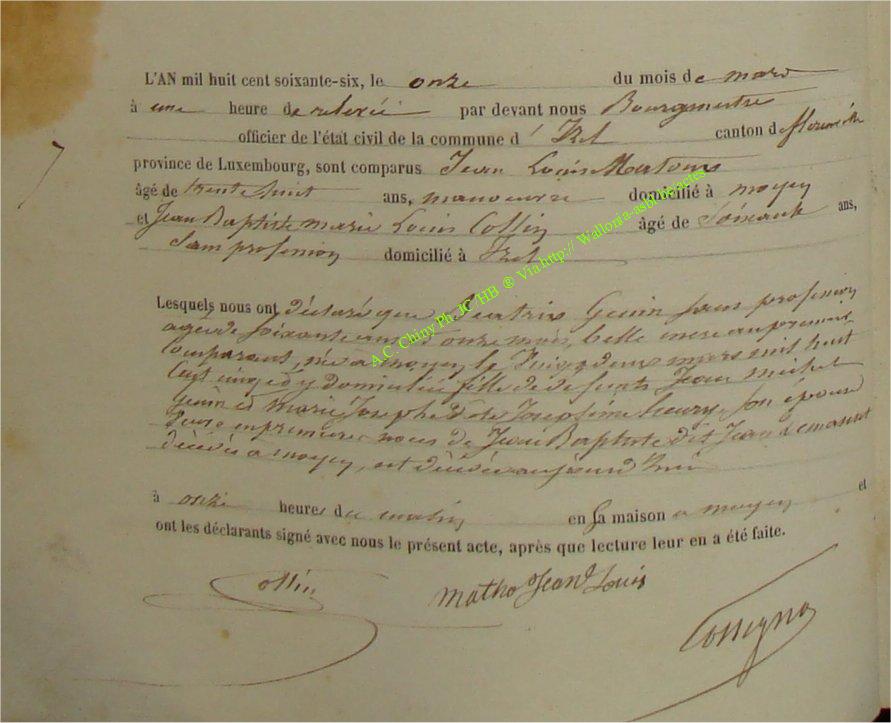 L'AN mil huit cent soixante-six, le onze du mois de mars
à une heure de relevée par devant nous Bourgmestre
officier de l'état civil de la commune d' Izel canton de florenville
province de Luxembourg, sont comparus Jean Louis
âgé de trente huit ans, manoeuvre domicilié à moyen
et Jean Baptiste marie Louis Collin âgé de Soixante ans,
Sans profession domicilié à Izel
Lesquels nous ont déclaré que Beatrix Guiin sans profession
agée de soixante ans et onze mois, belle mere au premier
Comparant, née a moyen le vingt deux mars mil huit
cent cinq et y domiciliée fille de defunts Jean michel
Guiin et marie Josephe dite Josephine henry son épouse
Veuve en premieres noces de Jean Baptiste dit Jean
décédé a moyen, est décédée aujourd'hui
à onze heures du matin en sa maison a moyen et
ont les déclarants signé avec nous le présent acte, après que lecture leur en a été faite.
Collin
matho Jean Louis
A.C. Chiny Ph. JC HB ® Via http:// Wallonia-asbl.be/actes